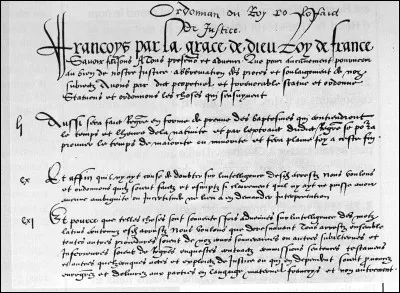 Ordonnan du Roy po le faict
de Justice.
Francoys par la grace de dieu Roy de france
Savoir faisons A tous presens et advenir Que pour aucunement pourveoir
au bien de nostre Justice abbreviation des proces et soulagement de noz
subiectz Avons par edict perpetuel et irrevocable statue et ordonne
Statuons et ordonnons les choses qui sensuyvent
li Aussi sera faict Regre en forme de preuve des baptesmes qui contiendront
le temps et lheure de la nativite et par lextraict dudict Regre se porra
prouver le temps de maiorite ou minorite et fera plaine foy a ceste fin
cx Et affin quil ny ayt cause de doubter sur lintelligence desd arrestz Nous voulons
et ordonnons quilz soient faictz et escriptz si clerement quil ny ayt ne puisse avoir
aucune ambiguite ou incertitude ne lieu a en demander interpretation
cxi Et pource que telles choses sont souventesfois advenues sur lintelligence des motz
latins contenuz esd arrestz Nous voulons que doresnavant Tous arrestz ensemble
toutes autres procedures soient de noz cours souveraines ou autres subalternes et
inferieures soient de Registres enquestes contractz commissions sentences testamens
et autres quelzconques actes et exploictz de Justice ou qui en dependent soient prononcez
enregistrez et delivrez aux parties en langage maternel francoys et non autrement.